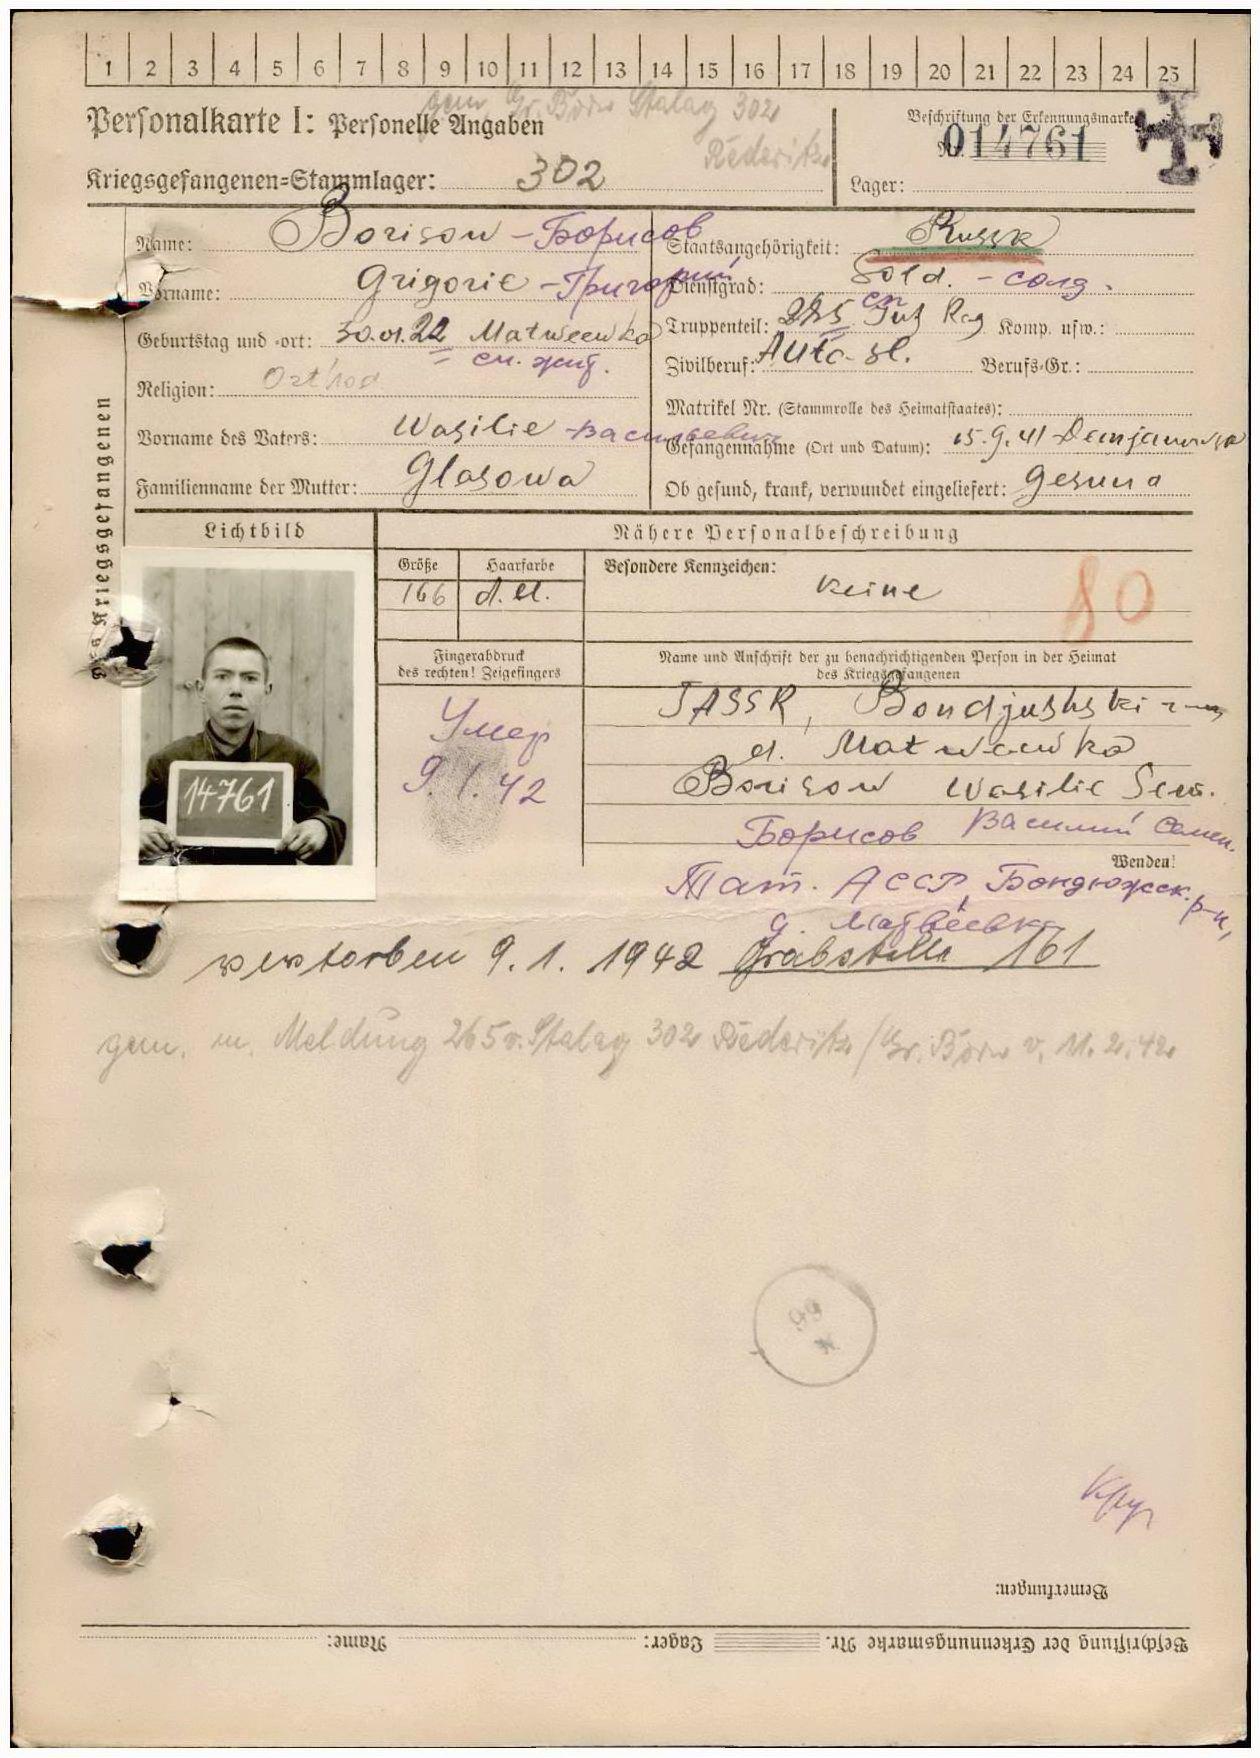 1 2 3 4 5 6 7 8 9 10 11 12 13 14 15 16 17 18 19 20 21 22 23 24 25
gem. Gr. Born Stalag 302
Rederitz
Personalkarte I: Personelle Angaben
Kriegsgefangenen=Stammlager: 302
Beschriftung der Erkennungsmarke
Nr. 014761
Lager:
Name: Borisow - Борисов
Vorname: Grigorie - Григорий
Geburtstag und -ort: 30.01.22 Matweewka
см. жит.
Religion: Orthod
Vorname des Vaters: Wasilie - Васильевич
Familienname der Mutter: Glasowa
Staatsangehörigkeit: Russk
Dienstgrad: Sold. - солд.
Truppenteil: Inf Reg Komp. usw.:
сп
Zivilberuf: Auto-sl. Berufs=Gr.:
Matrikel Nr. (Stammrolle des Heimatstaates):
Gefangennahme (Ort und Datum): 15.9.41 Demjanowka
Ob gesund, krank, verwundet eingeliefert: gesund
des Kriegsgefangenen
Lichtbild
14761
Nähere Personalbeschreibung
Größe Haarfarbe Besondere Kennzeichen:
166 keine
80
Fingerabdruck
des rechten! Zeigefingers
Умер
9.1.42
Name und Anschrift der zu benachrichtigenden Person in der Heimat
des Kriegsgefangenen
TASSR, Bondjushski
d. Matweewka
Borisow Wasilie Sem.
Борисов Василий Семен.
Wenden!
Тат. АССР, Бондюжск. р-н,
д. Матвеевка
verstorben 9.1.1942 Grabstelle 161
gem. m. Meldung 265 v. Stalag 302 Rederitz / Gr. Born v. 11.2.42
Bemerkungen:
Beschriftung der Erkennungsmarke Nr. Lager: Name: